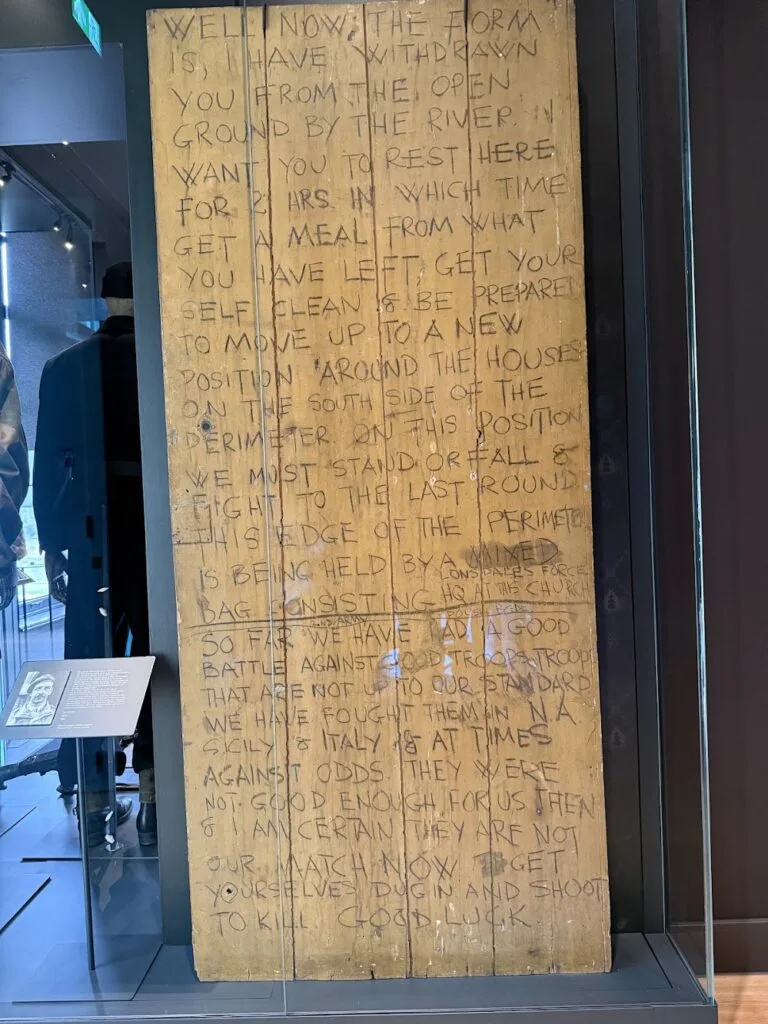 WELL NOW, THE FORM
IS, I HAVE WITHDRAWN
YOU FROM THE OPEN
GROUND BY THE RIVER. I
WANT YOU TO REST HERE
FOR 2 HRS. IN WHICH TIME
GET A MEAL FROM WHAT
YOU HAVE LEFT, GET YOUR
SELF CLEAN & BE PREPARED
TO MOVE UP TO A NEW
POSITION AROUND THE HOUSES
ON THE SOUTH SIDE OF THE
PERIMETER ON THIS POSITION
WE MUST STAND OR FALL &
FIGHT TO THE LAST ROUND.
THIS EDGE OF THE PERIMETER
IS BEING HELD BY A MIXED
LONSDALES FORCE
HQ AT THIS CHURCH
BAG CONSISTING
SO FAR WE HAVE HAD A GOOD
BATTLE AGAINST GOOD TROOPS. TROOPS
THAT ARE NOT UP TO OUR STANDARD
WE HAVE FOUGHT THEM IN N.A
SICILY & ITALY & AT TIMES
AGAINST ODDS. THEY WERE
NOT GOOD ENOUGH FOR US THEN
& I AM CERTAIN THEY ARE NOT
OUR MATCH NOW GET
YOURSELVES DUG IN AND SHOOT
TO KILL. GOOD LUCK